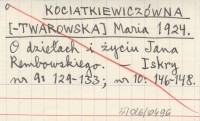 KOCIATKIEWICZÓWNA
[-TWAROWSKA] Maria 1924.
O dziełach i życiu Jana
Rembowskiego. — Iskry
nr 9: 129-133; nr 10: 146-148.